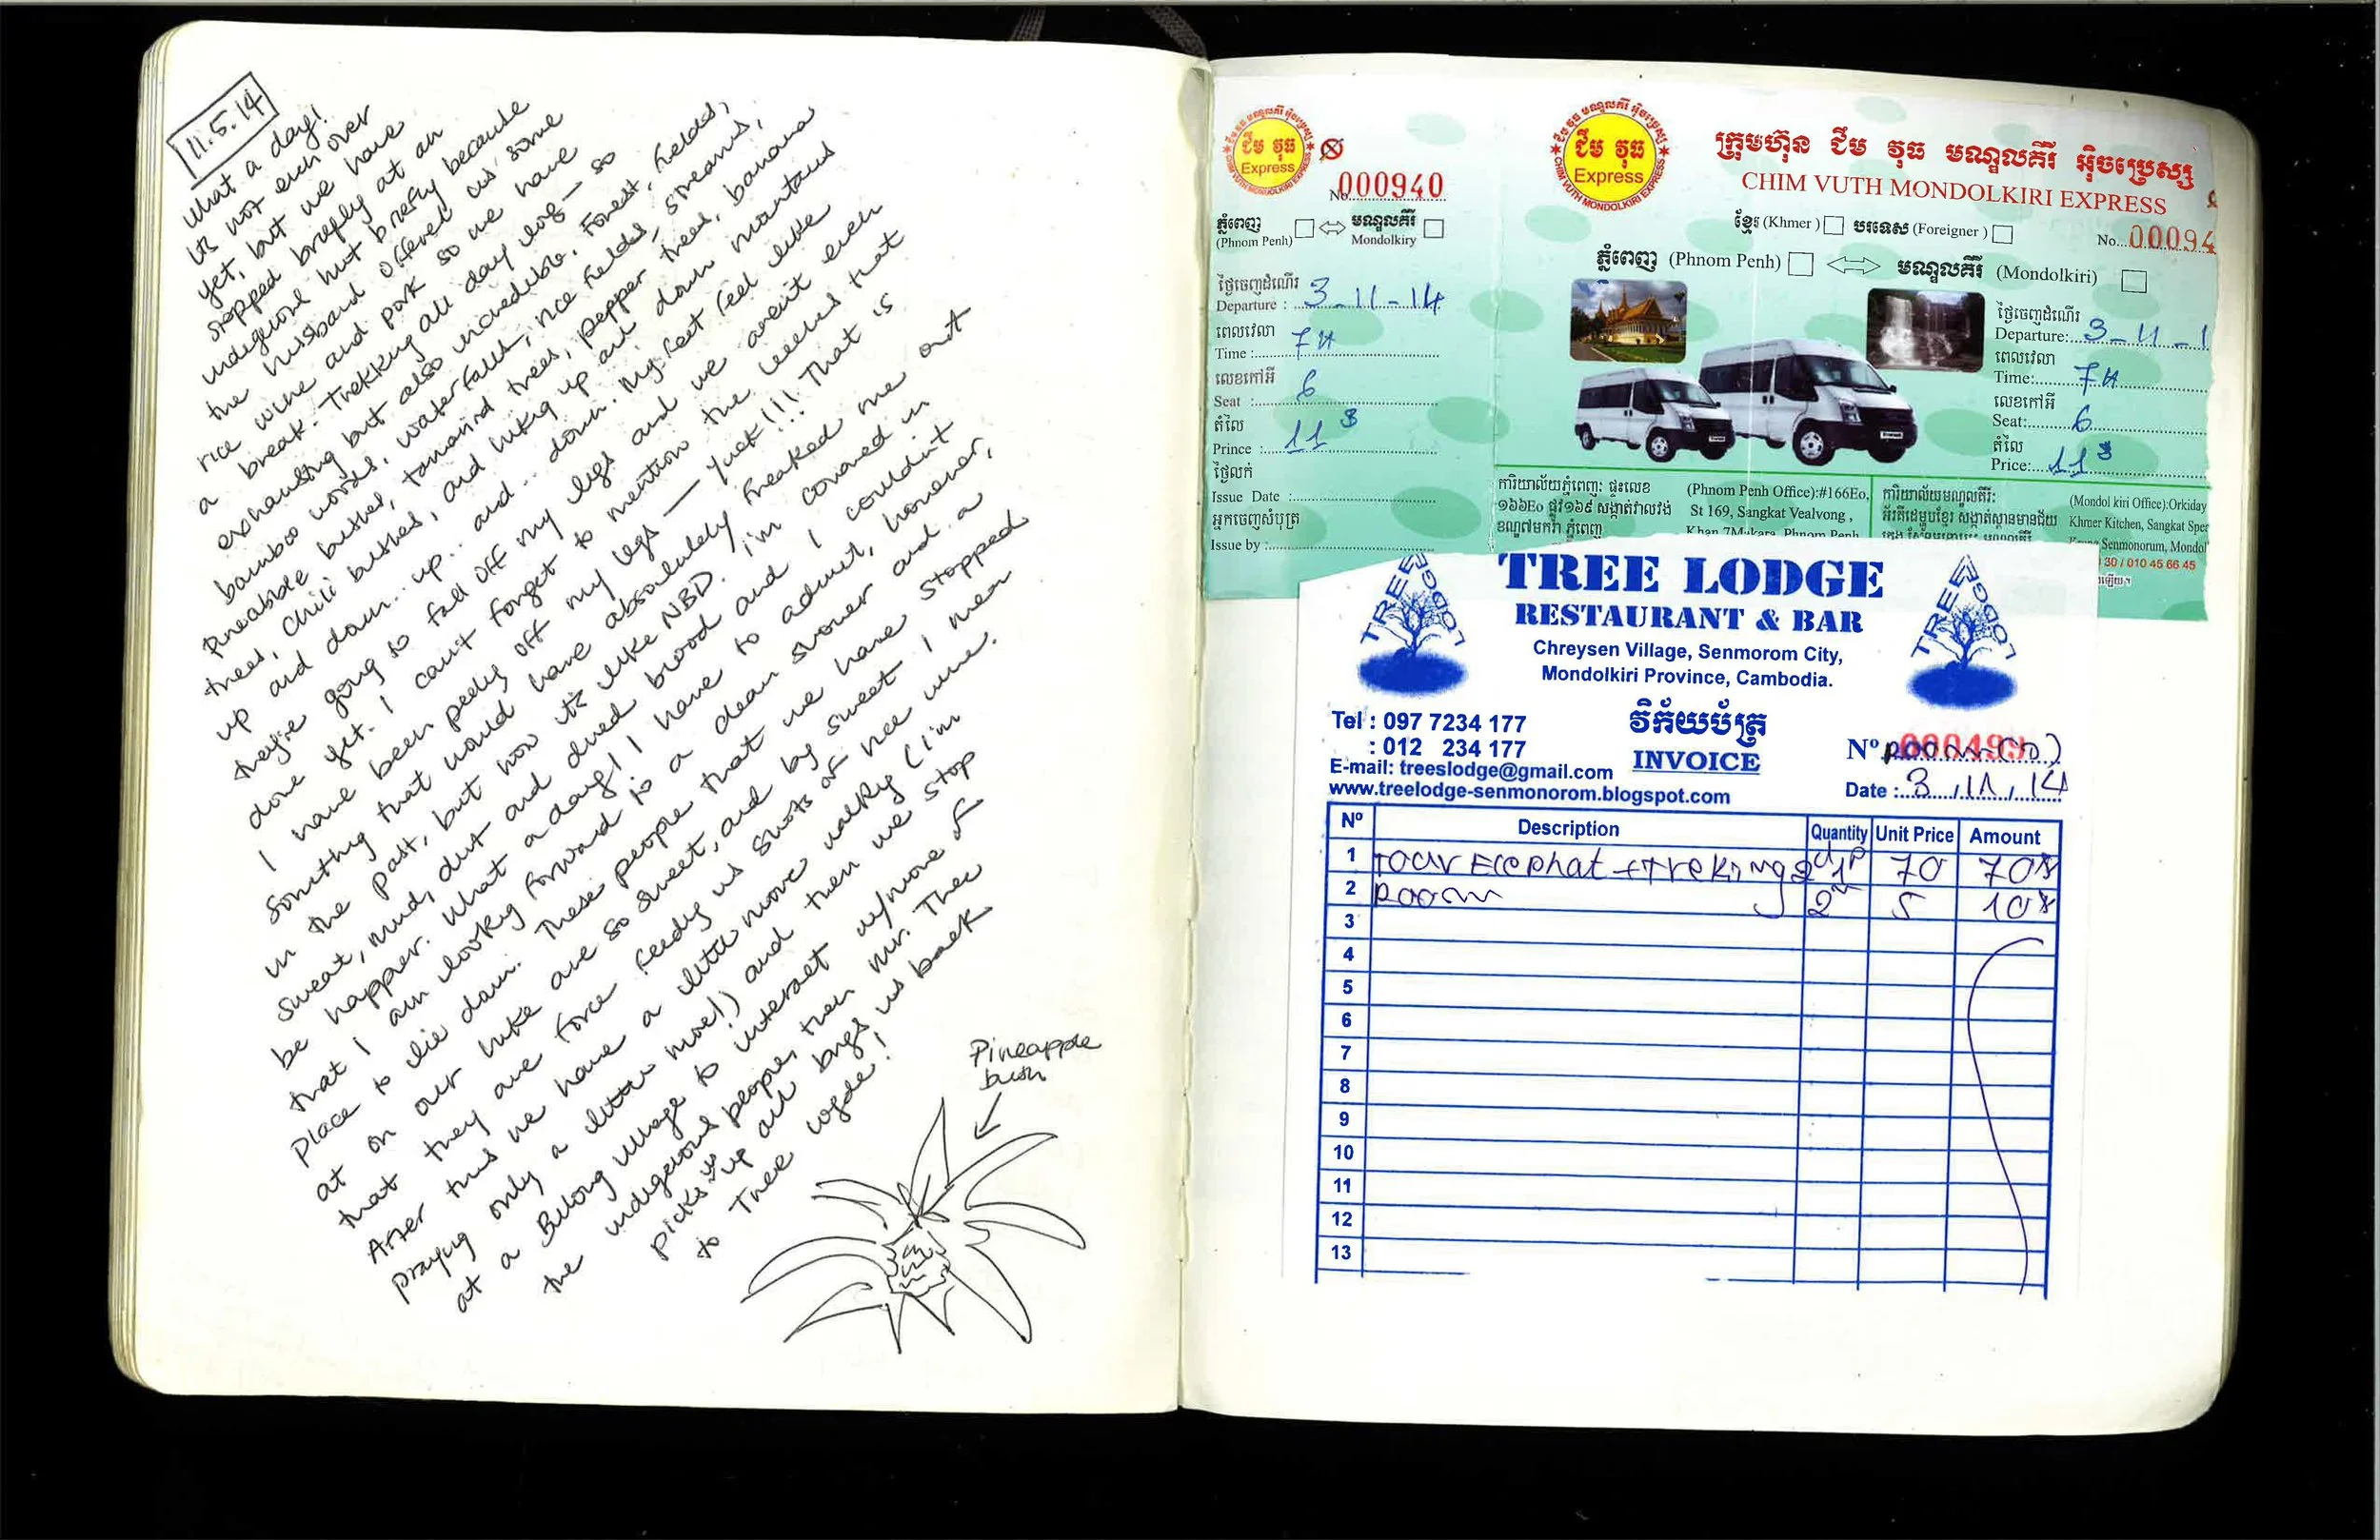 11.5.14
What a day!
Its not even over
yet, but we have
stopped briefly at an
indigenous hut briefly because
the husband offered us some
rice wine and pork so we have
a break. Trekking all day long — so
exhausting but also incredible. Forest, fields,
bamboo woods, waterfalls, rice fields, streams,
pineabble bushes, tamarind trees, pepper trees, banana
trees, chili bushes, and hiking up and down mountains
up and down.. up.. and... down. My feet feel like
they're going to fall off my legs and we arent even
done yet. I can't forget to mention the leeches that
I have been peeling off my legs — yuck!!! That is
something that would have absolutely freaked me out
in the past, but now its like NBD. i'm covered in
sweat, mud, dirt and dried blood and I couldn't
be happier. What a day! I have to admit, however,
that I am looking forward to a clean shower and a
place to lie down. These people that we have stopped
at on our hike are so sweet, and by sweet I mean
that they are force feeding us shots of rice wine.
After this we have a little more walking (I'm
praying only a little more!) and then we stop
at a Bulong village to interact w/more of
the indigenous people, then Mr. Tree
picks us up and brings us back
to Tree Lodge!
Pineapple
bush
ជឹម វុធ
Express
CHIM VUTH MONDOLKIRI EXPRESS
No. 000940
ភ្នំពេញ ⇔ មណ្ឌលគិរី
(Phnom Penh) Mondolkiry
ថ្ងៃចេញដំណើរ
Departure : 3-11-14
ពេលវេលា
Time : 7H
លេខកៅអី
Seat : 6
តំលៃ
Prince : 11$
ថ្ងៃលក់
Issue Date :
អ្នកចេញសំបុត្រ
Issue by :
ជឹម វុធ
Express
CHIM VUTH MONDOLKIRI EXPRESS
ក្រុមហ៊ុន ជឹម វុធ មណ្ឌលគិរី អ៊ិចប្រេស្ស
CHIM VUTH MONDOLKIRI EXPRESS
ខ្មែរ (Khmer) បរទេស (Foreigner)
No... 00094
ភ្នំពេញ (Phnom Penh) ⇔ មណ្ឌលគិរី (Mondolkiri)
ថ្ងៃចេញដំណើរ
Departure: 3-11-1
ពេលវេលា
Time: 7H
លេខកៅអី
Seat: 6
តំលៃ
Price: 11$
ការិយាល័យភ្នំពេញ: ផ្ទះលេខ
១៦៦Eo ផ្លូវ១៦៩ សង្កាត់វាលវង់
ខណ្ឌ៧មករា ភ្នំពេញ
(Phnom Penh Office):#166Eo,
St 169, Sangkat Vealvong ,
Khan 7Makara, Phnom Penh
ការិយាល័យមណ្ឌលគិរី:
(Mondol kiri Office):Orkiday
Khmer Kitchen, Sangkat Spe
Senmonorum, Mondol
30 / 010 45 66 45
TREE LODGE
TREE LODGE
RESTAURANT & BAR
Chreysen Village, Senmorom City,
Mondolkiri Province, Cambodia.
TREE LODGE
Tel : 097 7234 177
: 012 234 177
E-mail: treeslodge@gmail.com
www.treelodge-senmonorom.blogspot.com
វិក័យប័ត្រ
INVOICE
Nº
Date : 3 , 11 , 14
Nº Description Quantity Unit Price Amount
1 Tour Elephat + Treking 70 70$
2 Room 2n 5 10$
3
4
5
6
7
8
9
10
11
12
13